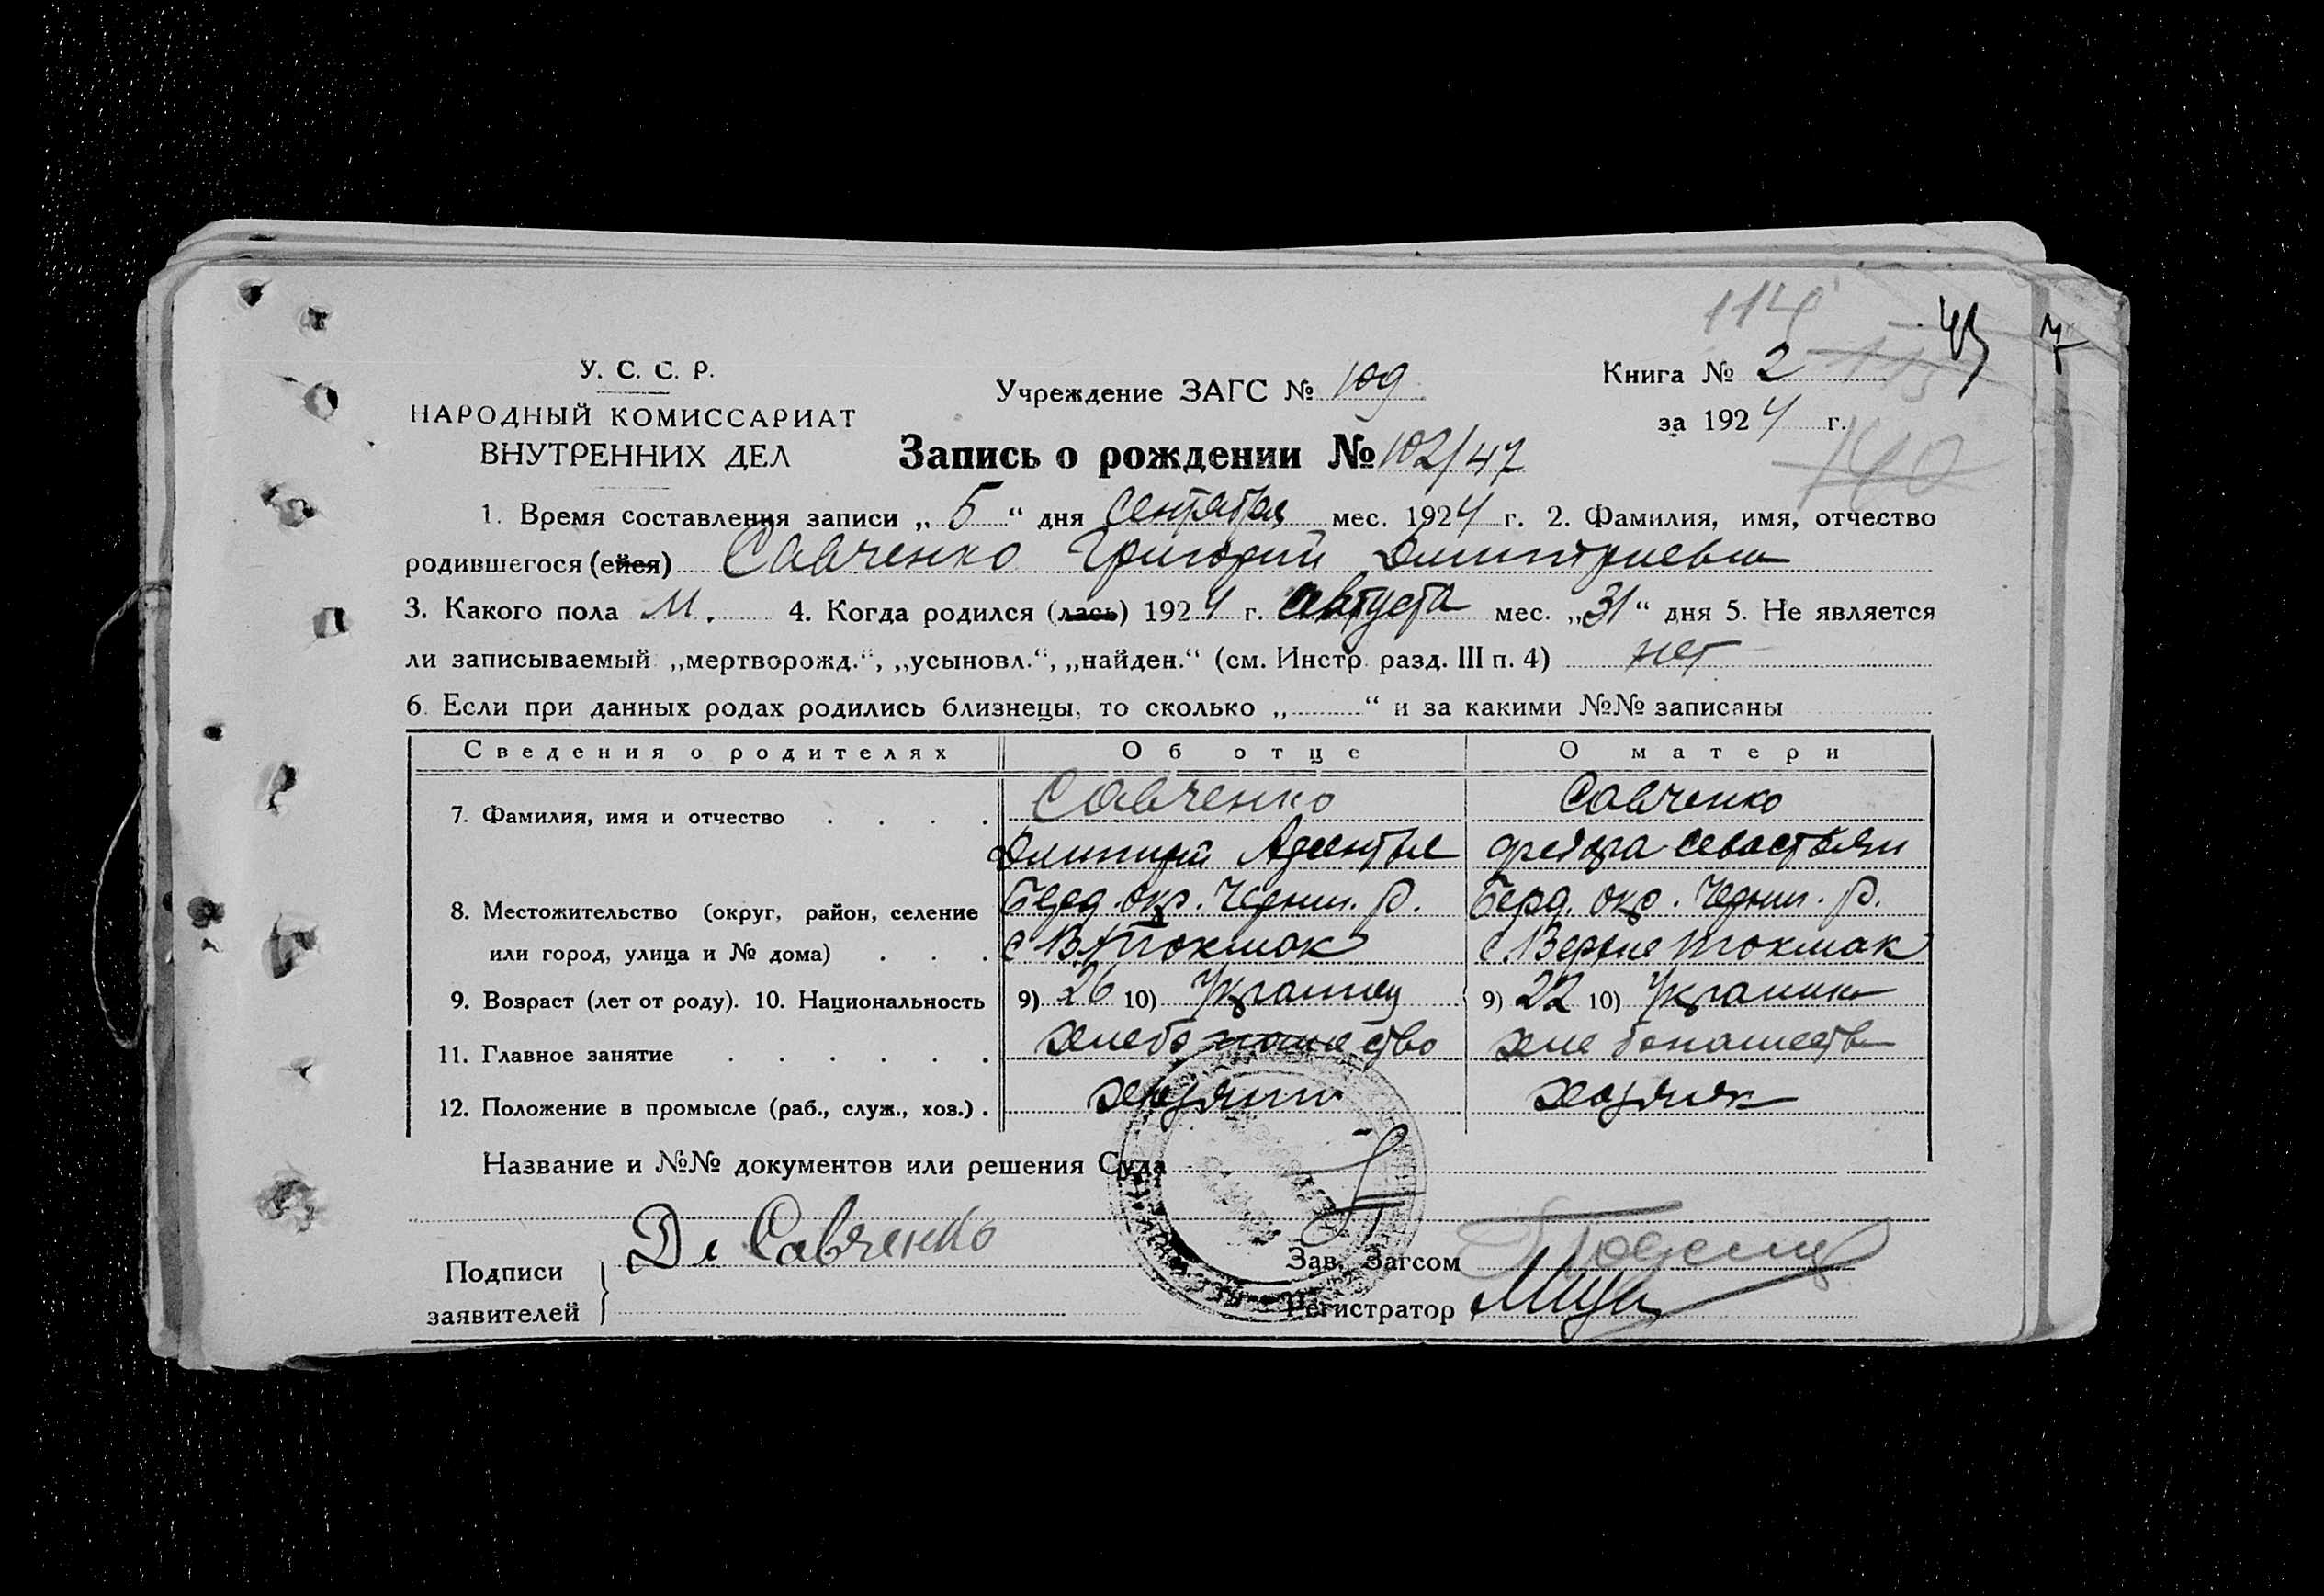 114
У. С. С. Р.
НАРОДНЫЙ КОМИССАРИАТ
ВНУТРЕННИХ ДЕЛ
Учреждение ЗАГС № 109
Книга № 2 115
за 1924 г.
140
Запись о рождении № 102/47
1. Время составления записи „ 5 “ дня Сентября мес. 1924 г. 2. Фамилия, имя, отчество
родившегося (ейся) Савченко Григорий Дмитриевич
3. Какого пола М. 4. Когда родился (лась) 1924 г. Августа мес. „31“ дня 5. Не является
ли записываемый „мертворожд.“, „усыновл.“, „найден.“ (см. Инстр. разд. III п. 4) нет
6. Если при данных родах родились близнецы, то сколько „ “ и за какими №№ записаны
Сведения о родителях Об отце О матери
7. Фамилия, имя и отчество Савченко Савченко
Дмитрий Севастьян
8. Местожительство (округ, район, селение Берд. окр. Черниг. р. Берд. окр. Черниг. р.
или город, улица и № дома) с В Токмак с Верхне Токмак
9. Возраст (лет от роду). 10. Национальность 9) 26 10) Украинец 9) 22 10) Украинк
11. Главное занятие хлебопашество хлебопашеств
12. Положение в промысле (раб., служ., хоз.) хозяин хозяик
Название и №№ документов или решения Суда
Подписи
заявителей
Д. Савченко
Зав. Загсом
Регистратор